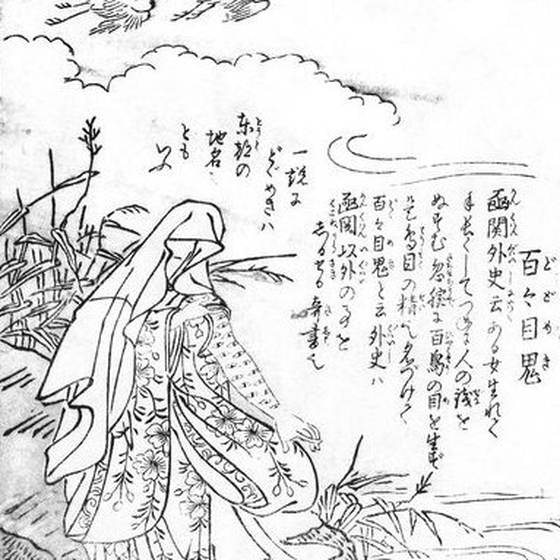 百々目鬼
函関外史云ある女生れて
手長くしてつねに人の銭を
ぬすむ忽腕に百鳥の目を生ず
是鳥目の精也名づけて
百々目鬼と云外史ハ
函関以外の事を
しるせる奇書也
一説に
どどめきハ
東都の
地名
とも